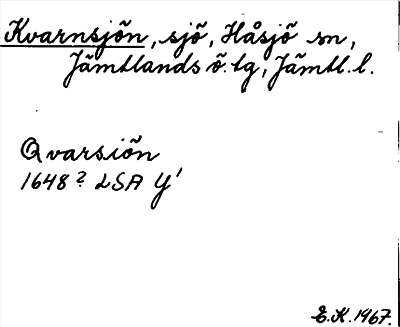 Kvarnsjön, sjö, Håsjö sn,
Jämtlands ö. tg, Jämtl. l.
Qvarsiön
1648? LSA Y'
E.K. 1967.